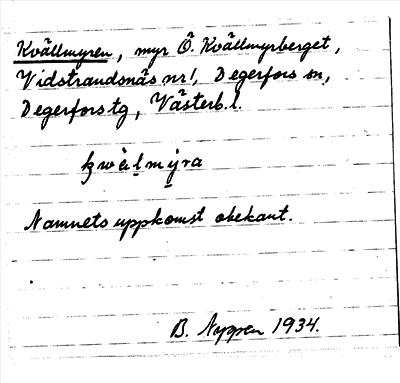 Kvällmyren, myr Ö. Kvällmyrberget,
Vidstrandsnäs nr 1, Degerfors sn,
Degerfors tg, Västerb. l.
kwälmýra
Namnets uppkomst obekant.
B. Nyppen 1934.